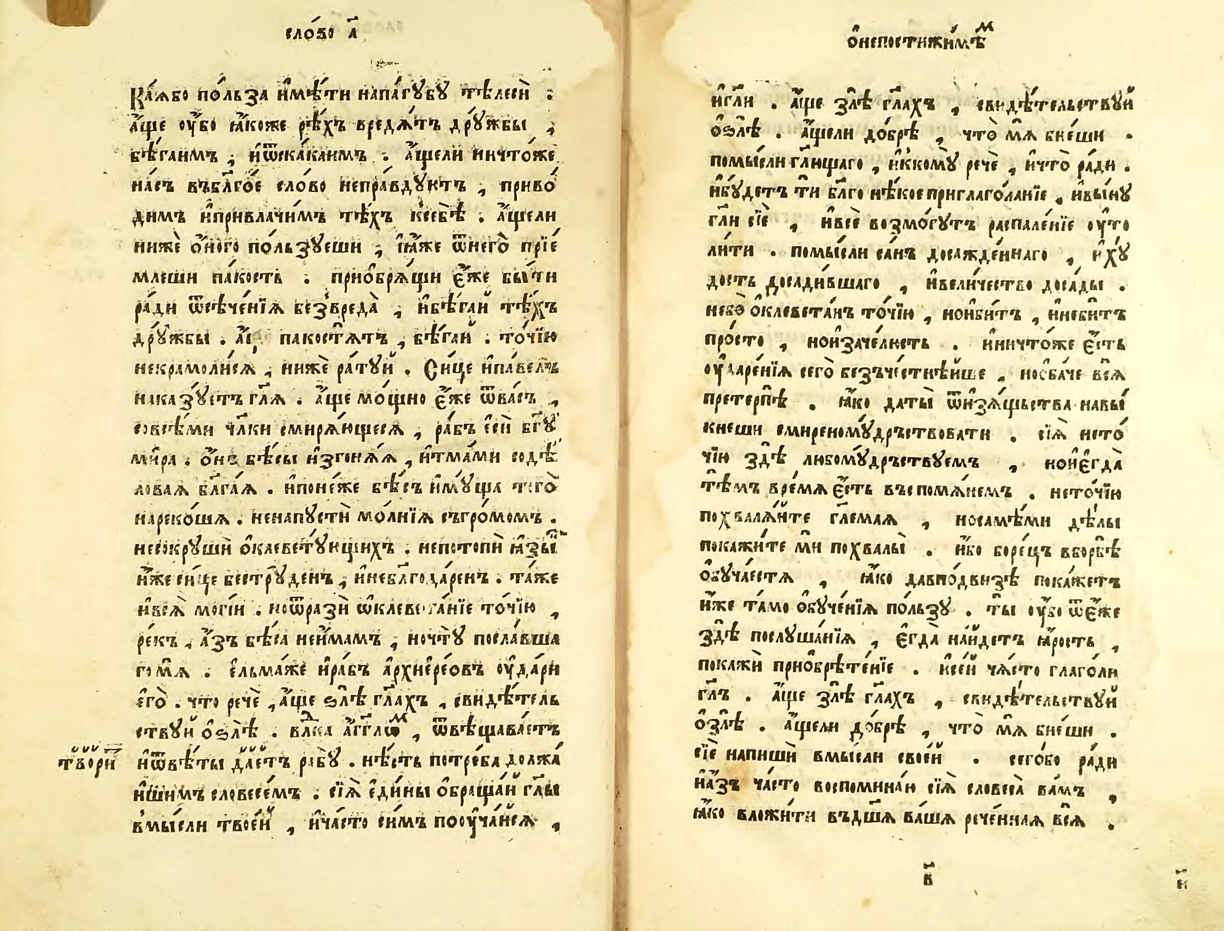 сло́во а҃
Ка́ѧбо по́льза и҆мѣ́ти напа́гꙋбꙋ тѣлесѝ :
а҆́ще ᲂу҆́бо ꙗ҆́коже рѣ́хъ вредѧ́тъ дрꙋ́жбы ,
бѣ́гаимъ , и҆ѿска́каимъ . а҆́щели ничто́же
на́съ въблго́е сло́во непра́вдꙋютъ , приво́
димъ и҆привлачи́мъ тѣ́хъ ксебѣ̀ . а҆́щели
нижѐ о҆́ного по́льзꙋеши , и҆ꙗ҆́же ѿнего̀ прїе́
млеши па́кость . приѡбрѧ́щи є҆́же бы́ти
ра́ди ѿсѣче́нїѧ безвреда̀ , и҆бѣ́гай тѣ́хъ
дрꙋ́жбы . па́костѧтъ , бѣ́гай . то́чїю
некрамоли́сѧ , ниже ра́тꙋй . Си́це и҆па́велъ
нака́зꙋетъ гл҃ѧ . а҆́ще мо́щно є҆́же ѿва́съ ,
совсѣ́ми чл҃ки смирѧ́ющесѧ , ра́бъ се́й бг҃ꙋ̀
ми́ра . о҆́нъ бѣ́сы и҆згонѧ́ѧ , и҆тма́ми содѣ́
ловаѧ бл҃га́ѧ . и҆поне́же бѣ́съ и҆мꙋ́ща того̀
нареко́ша . ненапꙋстѝ мо́лнїѧ съгро́момъ .
несокрꙋшѝ ѡ҆клевета́ющихъ . непотопѝ ꙗ҆зы́
и҆́же си́це бестрꙋ́денъ , и҆небл҃года́ренъ . та́же
и҆всѧ̀ могі́и . но ѿразѝ ѡ҆клевета́нїе то́чїю ,
ре́къ . а҆́зъ бѣ́са неи҆́мамъ , но чтꙋ̀ посла́вша
гомѧ̀ . є҆льма́же и҆ра́бъ а҆рхїере́овъ ᲂу҆да́ри
є҆го̀ . что речѐ , а҆́ще ѕлѣ̀ гл҃ахъ , свидѣ́тель
ствꙋй ѡ҆ѕлѣ̀ . влⷣка а҆́гг҃лѡⷨ , ѿвѣщава́етъ
тво́ритъ
и҆ѿвѣ́ты дае́тъ рабꙋ̀ . нѣ́сть потре́ба должа́
йшимъ словесе́мъ . сїѧ̀ є҆ди́ны ѡ҆браща́й гл҃ы
вмы́сли твое́й , и҆ча́сто си́мъ поᲂуча́йсѧ ,
ѡ҆непостижи́мѣⷨ
и҆гл҃и . а҆́ще ѕлѣ̀ гл҃ахъ , свидѣ́тельствꙋй
ѡ҆ѕлѣ̀ . а҆́щели до́брѣ , что̀ мѧ̀ бїе́ши .
помы́сли гл҃ющаго , и҆ккомꙋ̀ речѐ , и҆что̀ ра́ди .
и҆бꙋ́детъ тѝ бл҃го нѣ́кое приглаго́ланїе , и҆вы́нꙋ
гл҃и сїѐ , и҆всѐ возмо́гꙋтъ распале́нїе ᲂу҆то
ли́ти . помы́сли са́нъ досажде́ннаго , и҆хꙋ́
дость досади́вшаго , и҆вели́чество доса́ды .
небо̀ ѡ҆клевета́нъ то́чїю , но и҆би́тъ , и҆неби́тъ
про́сто , но и҆за́челюсть . и҆ничто́же є҆́сть
ᲂу҆даре́нїѧ сего̀ безъче́стнѣйше , но о҆ба́че всѧ̀
претерпѣ̀ . ꙗ҆́ко даты̀ ѿизѧ́щьства навы́
кнеши смиреномꙋ́дръствовати . сїѧ̀ нето́
чїю здѣ̀ любомꙋ́дръствꙋемъ , но и҆є҆гда̀
тѣ́мъ вре́мѧ є҆́сть въспомѧ́немъ . нето́чїю
похвалѧ́йте гл҃емаѧ , но самѣ́ми дѣ́лы
покажи́те мѝ похвалы̀ . и҆́бо боре́цъ вборбѣ̀
ѡ҆бꙋча́етсѧ , ꙗ҆́ко давпо́двизѣ пока́жетъ
и҆́же та́мо ѡ҆бꙋче́нїѧ по́льзꙋ . ты̀ ᲂу҆́бо ѿє҆́же
здѣ̀ послꙋша́нїѧ , є҆гда̀ на́йдетъ ꙗ҆́рость ,
покажѝ приѡбрѣ́тенїе . и҆се́й ча́сто глаго́ли
гл҃ъ . а҆́ще ѕлѣ̀ гл҃ахъ , свидѣ́тельствꙋй
ѡ҆ѕлѣ̀ . а҆́щели до́брѣ , что̀ мѧ̀ бїе́ши .
сїѐ напишѝ вмы́сли свое́й . сего́бо ра́ди
и҆а҆́зъ ча́сто воспомина́ю сїѧ̀ словеса̀ ва́мъ ,
ꙗ҆́ко вложи́ти въдш҃ѧ ва́шѧ рече́ннаѧ всѧ̀ .
в҃
н҃